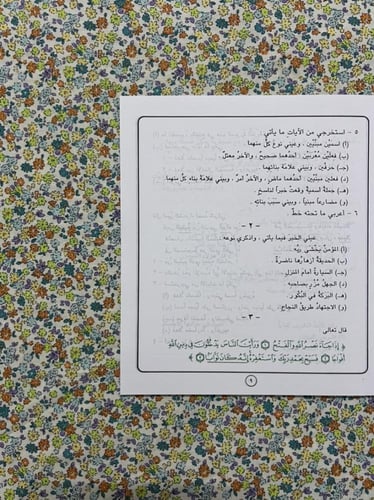 ٥ - استخرجي من الآيات ما يأتي
(أ) اسمين مبنيين ، وعيّني نوع كل منهما .
(ب) فعلين معربين : أحدهما صحيح ، والآخر معتل .
(جـ) حرفين ، وبيني علامة بنائهما .
(د) فعلين مبنيين : أحدهما ماض ، والآخر أمر ، وبيني علامة بناء كل منهما .
(هـ) جملة اسمية وقعت خبراً لناسخ .
(و) مضارعاً مبنياً ، وبيني سبب بنائه .
٦ - أعربي ما تحته خط .
- ٢ -
عيني الخبر فيما يأتي ، واذكري نوعه
(أ) المؤمن يخشى ربه .
(ب) الحديقة أزهارها ناضرة .
(جـ) السيارة أمام المنزل .
(د) الجهل مزر بصاحبه .
(هـ) البركة في البكور .
(و) الاجتهاد طريق النجاح .
- ٣ -
قال تعالى
﴿ إِذَا جَاءَ نَصْرُ اللَّهِ وَالْفَتْحُ ۝ وَرَأَيْتَ النَّاسَ يَدْخُلُونَ فِي دِينِ اللَّهِ
أَفْوَاجًا ۝ فَسَبِّحْ بِحَمْدِ رَبِّكَ وَاسْتَغْفِرْهُ إِنَّهُ كَانَ تَوَّابًا ﴾
٩